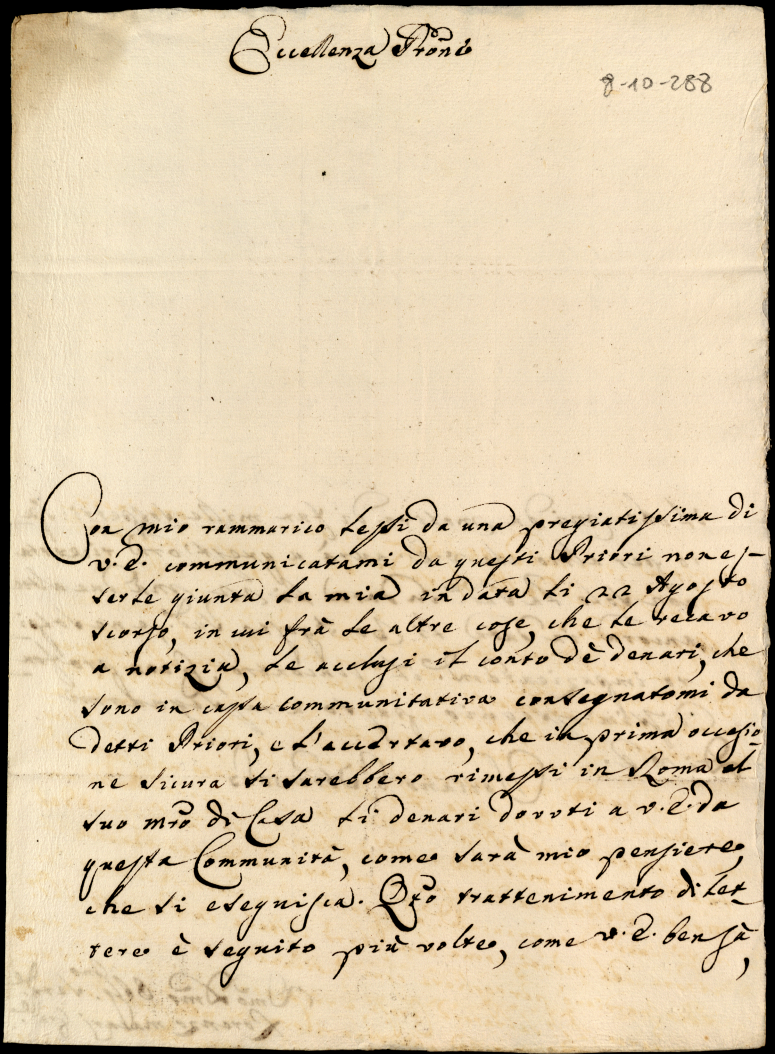 Eccellenza Prone
8-10-288
Con mio rammarico lessi da una pregiatissima di
V.E. communicatami da questi Priori non es-
serle giunta la mia in data li 22 Agosto
scorso, in cui frà le altre cose, che le recavo
a notizia, le acclusi il conto dè denari, che
sono in cassa communitativa consegnatomi da
detti Priori, e l'accertavo, che in prima occasio-
ne sicura si sarebbero rimessi in Roma al
suo mro di Casa li denari dovuti a V.E. da
questa Communità, come sarà mio pensiere,
che si eseguisca. Qsto trattenimento di let-
tere è seguito più volte, come V.E. ben sà,